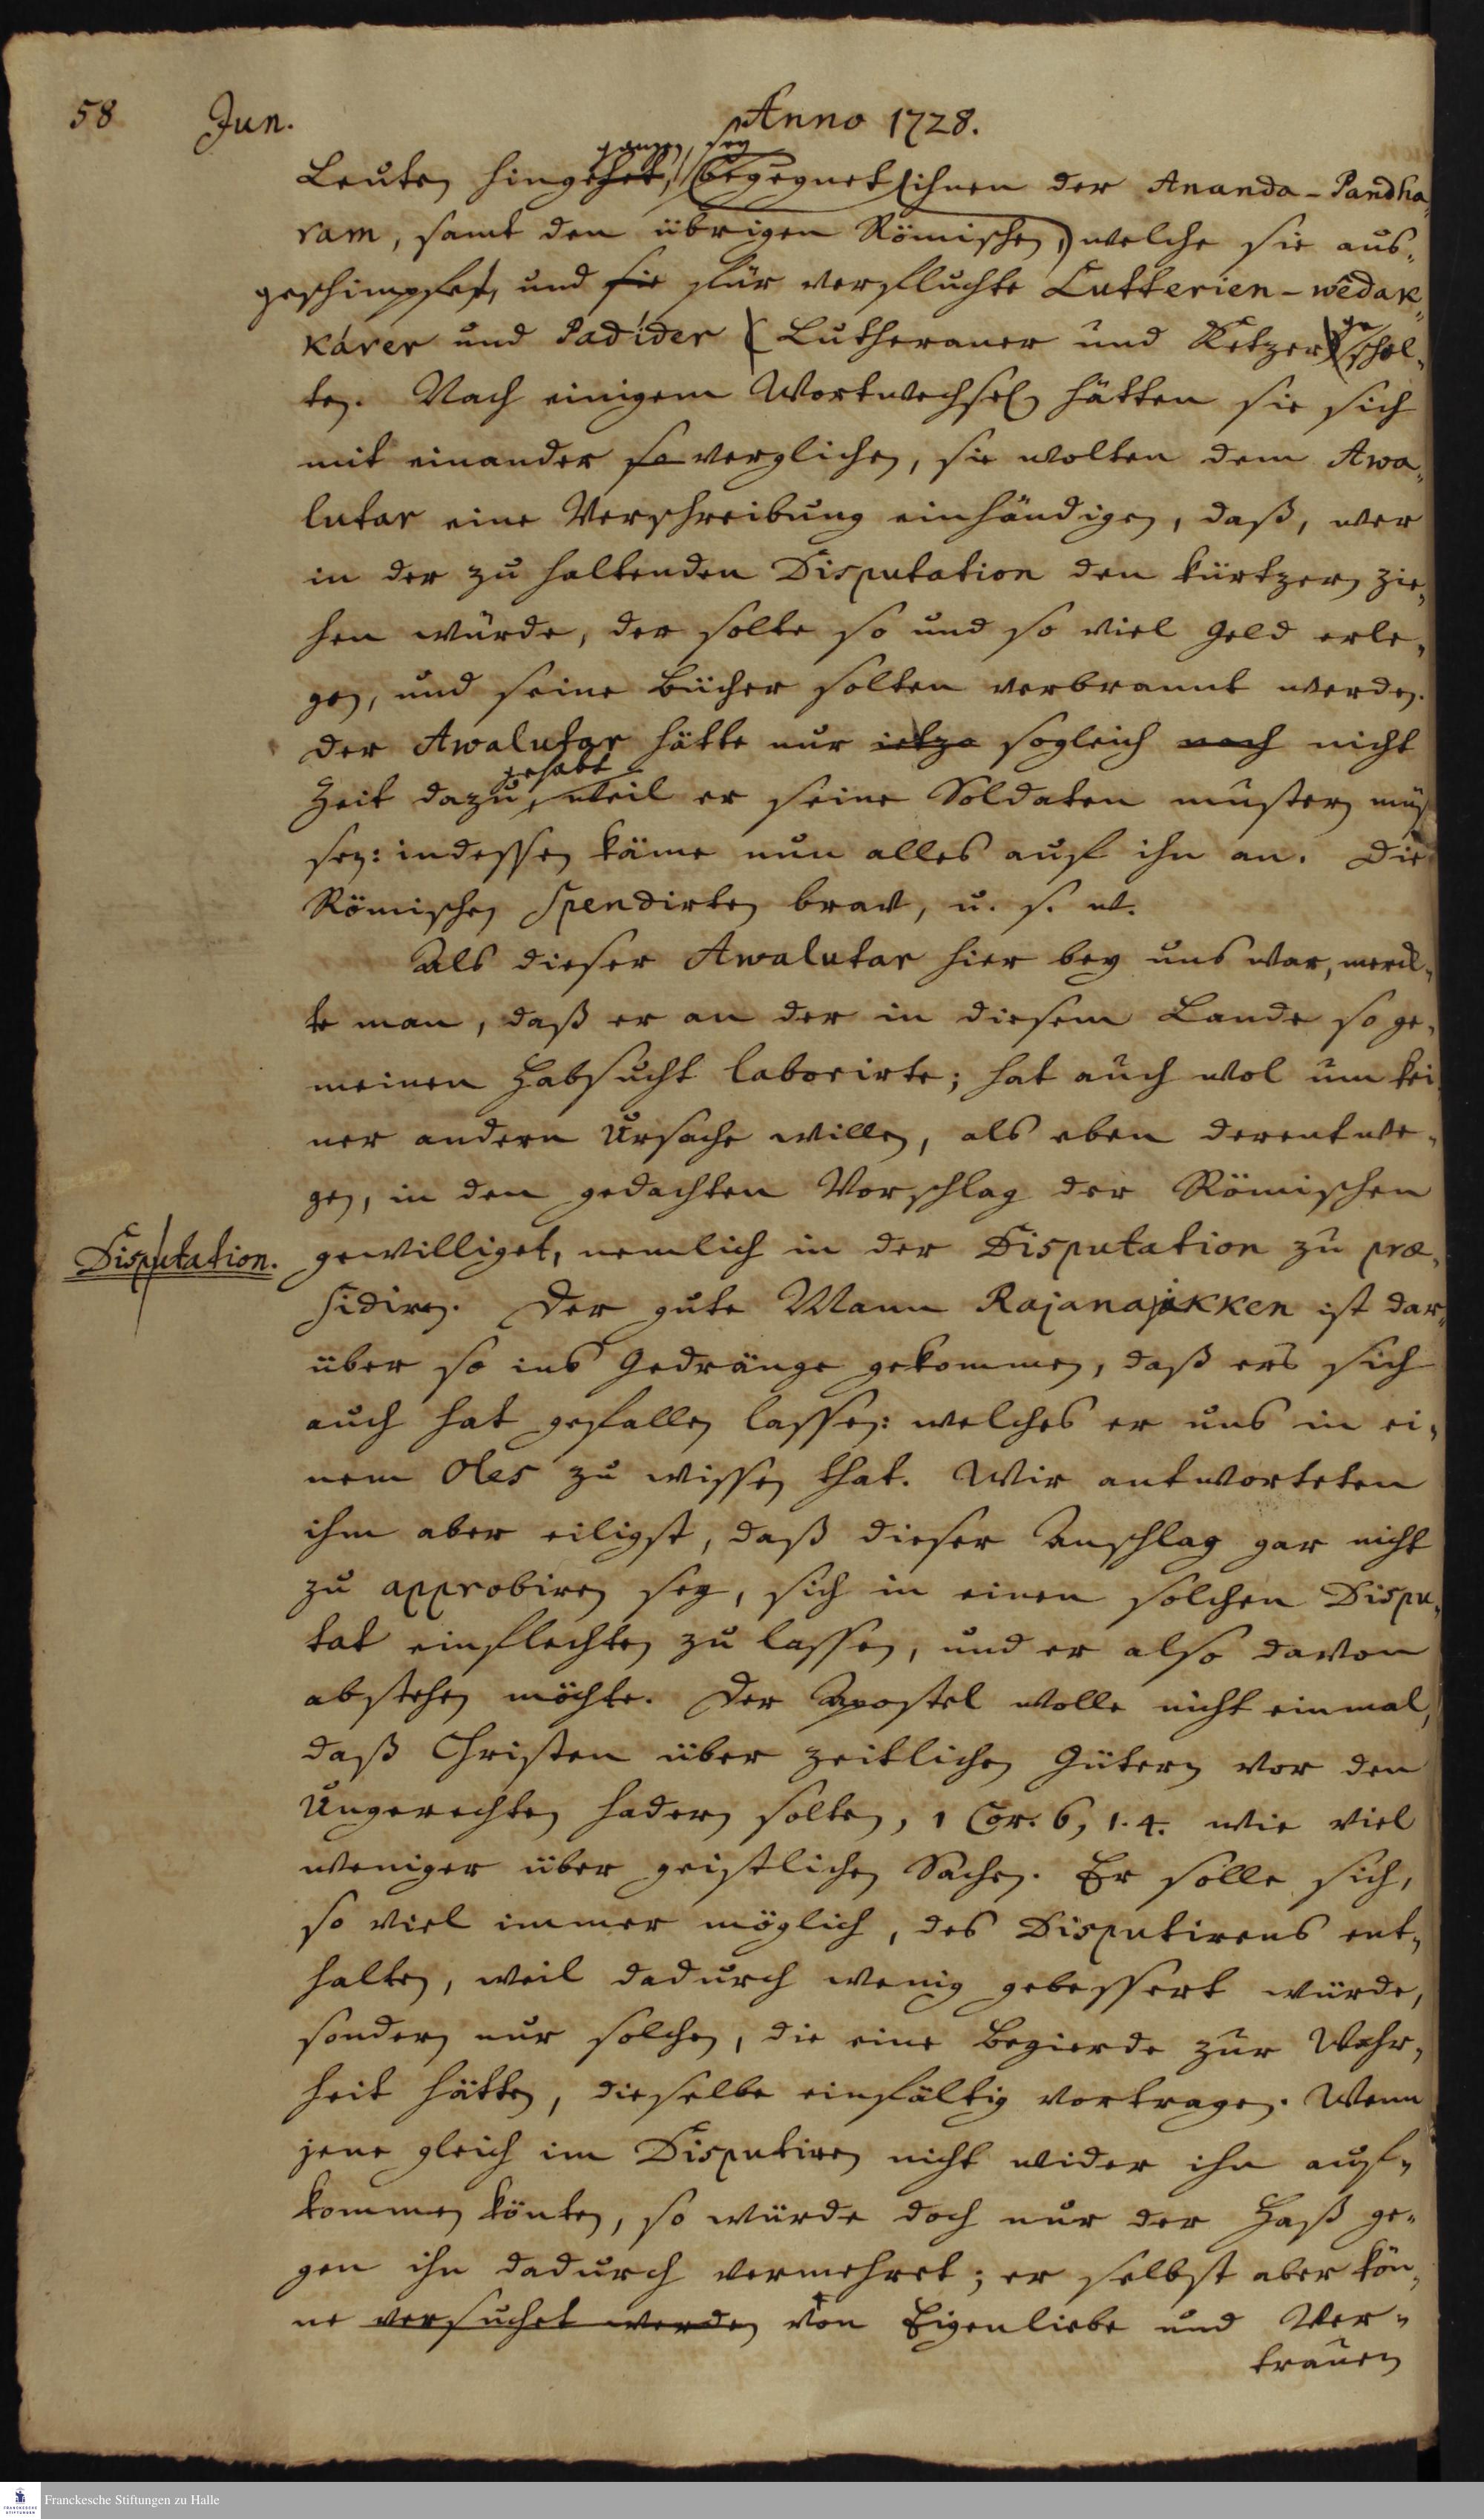 58 Jun. Anno 1728.
gangen, sey
Leuten hingehet, (begegnet ihnen der Ananda-Pandha„
ram, samt den übrigen Römischen,) welche sie aus„
geschimpfet, und sie für verfluchte Lutterien-wêdak„
kárer und Padider (Lutheraner und Ketzer) geschol„
ten. Nach einigem Wortwechsel hätten sie sich
mit einander so verglichen, sie wolten dem Awa„
lutar eine Verschreibung einhändigen, daß, wer
in der zu haltenden Disputation den kürtzern zie„
hen würde, der solte so und so viel Geld erle„
gen, und seine Bücher solten verbrannt werden.
Der Awalutar hätte nur ietzo sogleich noch nicht
gehabt
Zeit dazu, weil er seine Soldaten mustern müs
sen: indessen käme nun alles auf ihn an. Die
Römischen spendirten brav, u. s. w.
Als dieser Awalutar hier bey uns war, merck„
te man, daß er an der in diesem Lande so ge„
meinen Habsucht laborirte; hat auch wol um kei
ner andern Ursache willen, als eben derentwe„
gen, in den gedachten Vorschlag der Römischen
Disputation. gewilliget, nemlich in der Disputation zu præ„
sidiren. Der gute Mann Rajanaikken ist dar„
über so ins Gedränge gekommen, daß ers sich
auch hat gefallen lassen: welches er uns in ei„
nem Oles zu wissen that. Wir antworteten
ihm aber eiligst, daß dieser Anschlag gar nicht
zu approbiren sey, sich in einen solchen Dispu„
tat einflechten zu lassen, und er also davon
abstehen möchte. Der Apostel wolle nicht einmal,
daß Christen über zeitlichen Gütern vor den
Ungerechten hadern solten, 1 Cor. 6, 1. 4. wie viel
weniger über geistlichen Sachen. Er solle sich,
so viel immer möglich, des Disputirens ent„
halten, weil dadurch wenig gebessert würde,
sondern nur solchen, die eine Begierde zur Wahr„
heit hätten, dieselbe einfältig vortragen. Wenn
jene gleich im Disputiren nicht wider ihn auf„
kommen könten, so würde doch nur der Haß ge„
gen ihn dadurch vermehret; er selbst aber kön„
ne versuchet werden von Eigenliebe und Ver„
trauen
Franckesche Stiftungen zu Halle